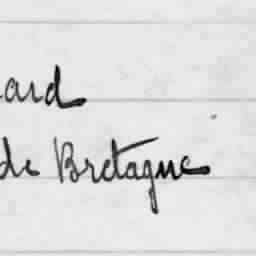 ard
de Bretagne